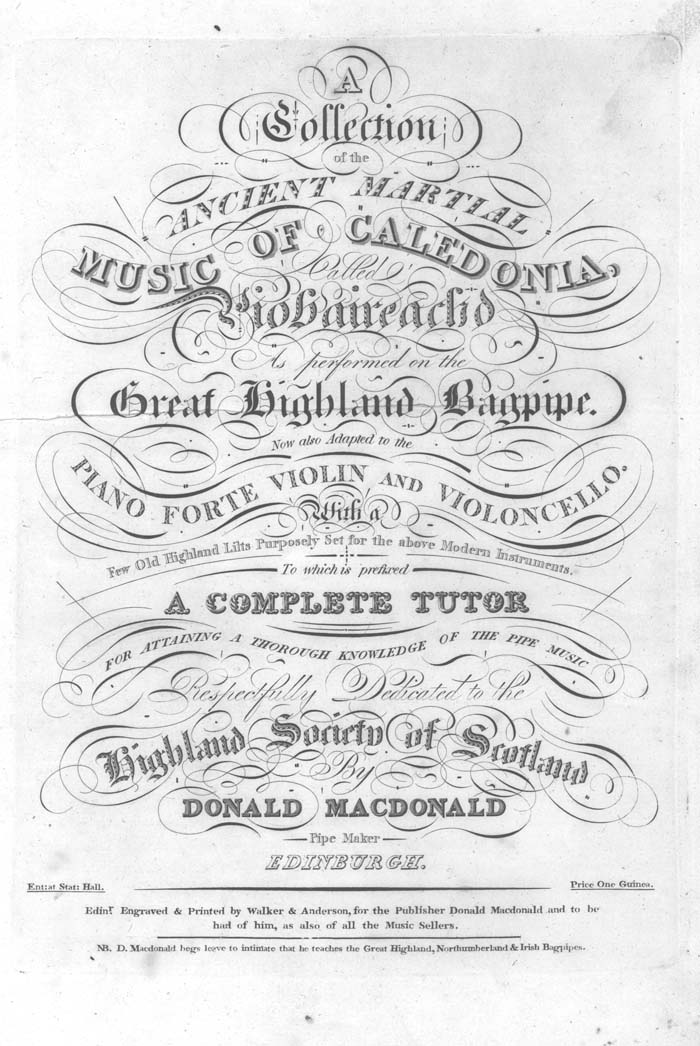 A
Collection
of the
ANCIENT MARTIAL
MUSIC OF CALEDONIA,
Called
Piobaireachd
As performed on the
Great Highland Bagpipe.
Now also Adapted to the
PIANO FORTE VIOLIN AND VIOLONCELLO.
With a
Few Old Highland Lilts Purposely Set for the above Modern Instruments.
To which is prefixed
A COMPLETE TUTOR
FOR ATTAINING A THOROUGH KNOWLEDGE OF THE PIPE MUSIC
Respectfully Dedicated to the
Highland Society of Scotland
By
DONALD MACDONALD
Pipe Maker
EDINBURGH.
Ent: at Stat: Hall. Price One Guinea.
Edinr. Engraved & Printed by Walker & Anderson, for the Publisher Donald Macdonald and to be
had of him, as also of all the Music Sellers.
NB. D. Macdonald begs leave to intimate that he teaches the Great Highland, Northumberland & Irish Bagpipes.